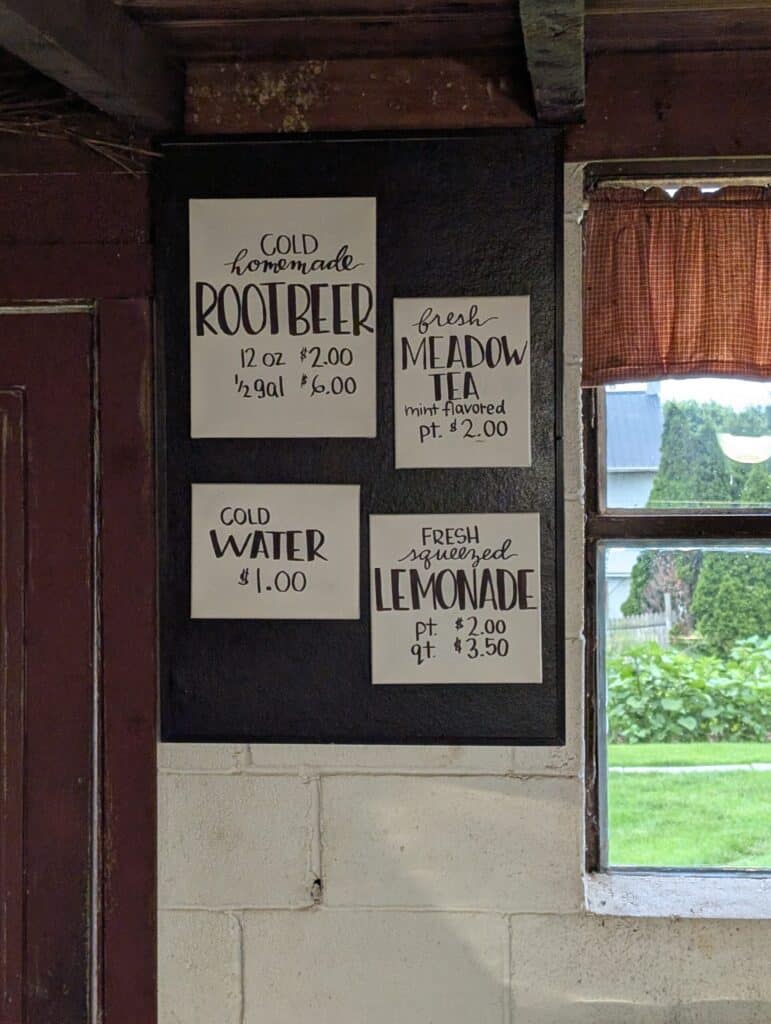 COLD
homemade
ROOTBEER
12 oz $2.00
½gal $6.00
fresh
MEADOW
TEA
mint flavored
pt. $2.00
COLD
WATER
$1.00
FRESH
squeezed
LEMONADE
pt. $2.00
qt. $3.50